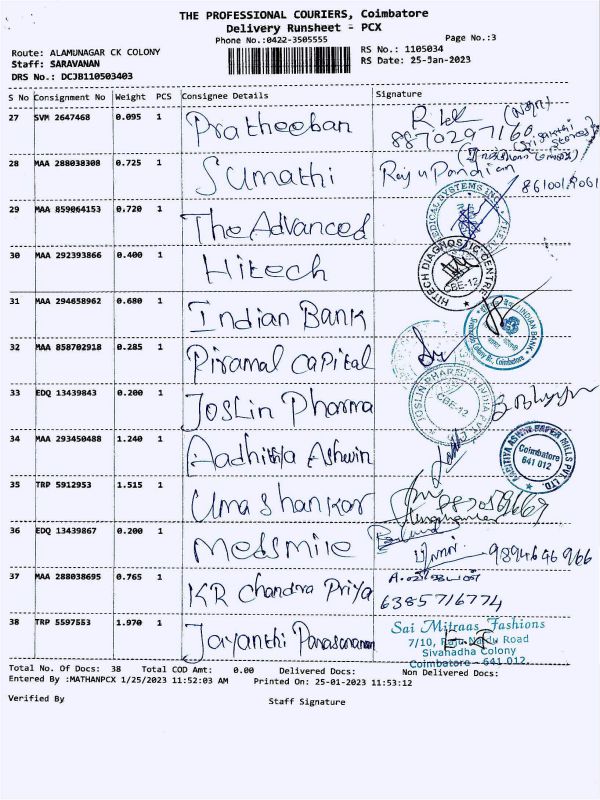 THE PROFESSIONAL COURIERS, Coimbatore
Delivery Runsheet - PCX
Phone No.:0422-3505555
Page No.:3
Route: ALAMUNAGAR CK COLONY
Staff: SARAVANAN
DRS No.: DCJB110503403
RS No.: 1105034
RS Date: 25-Jan-2023
S No Consignment No Weight PCS Consignee Details Signature
27 SVM 2647468 0.095 1 Pratheeban
8870297160
28 MAA 288038308 0.725 1 Sumathi Raju Pandian
29 MAA 859064153 0.720 1 The Advanced
30 MAA 292393866 0.400 1 Hitech
HITECH DIAGNOSTIC CENTRE CBE-12
31 MAA 294658962 0.680 1 Indian Bank
INDIAN BANK Coimbatore
32 MAA 858702918 0.285 1 Piramal capital
33 EDQ 13439843 0.200 1 Joslin Pharma
CBE-12
34 MAA 293450488 1.240 1 Aadhithya Ashwin
AADITYA ASHWIN PAPER MILLS PVT LTD. Coimbatore 641 012
35 TRP 5912953 1.515 1 Uma shankar
36 EDQ 13439867 0.200 1 Medsmile 9894646966
37 MAA 288038695 0.765 1 KR chandra Priya
6385716774
38 TRP 5597553 1.970 1 Jayanthi
Sai Mitraas Fashions
7/10, Raju Naidu Road
Sivanadha Colony
Coimbatore - 641 012.
Total No. Of Docs: 38 Total COD Amt: 0.00 Delivered Docs: Non Delivered Docs:
Entered By :MATHANPCX 1/25/2023 11:52:03 AM Printed On: 25-01-2023 11:53:12
Verified By Staff Signature